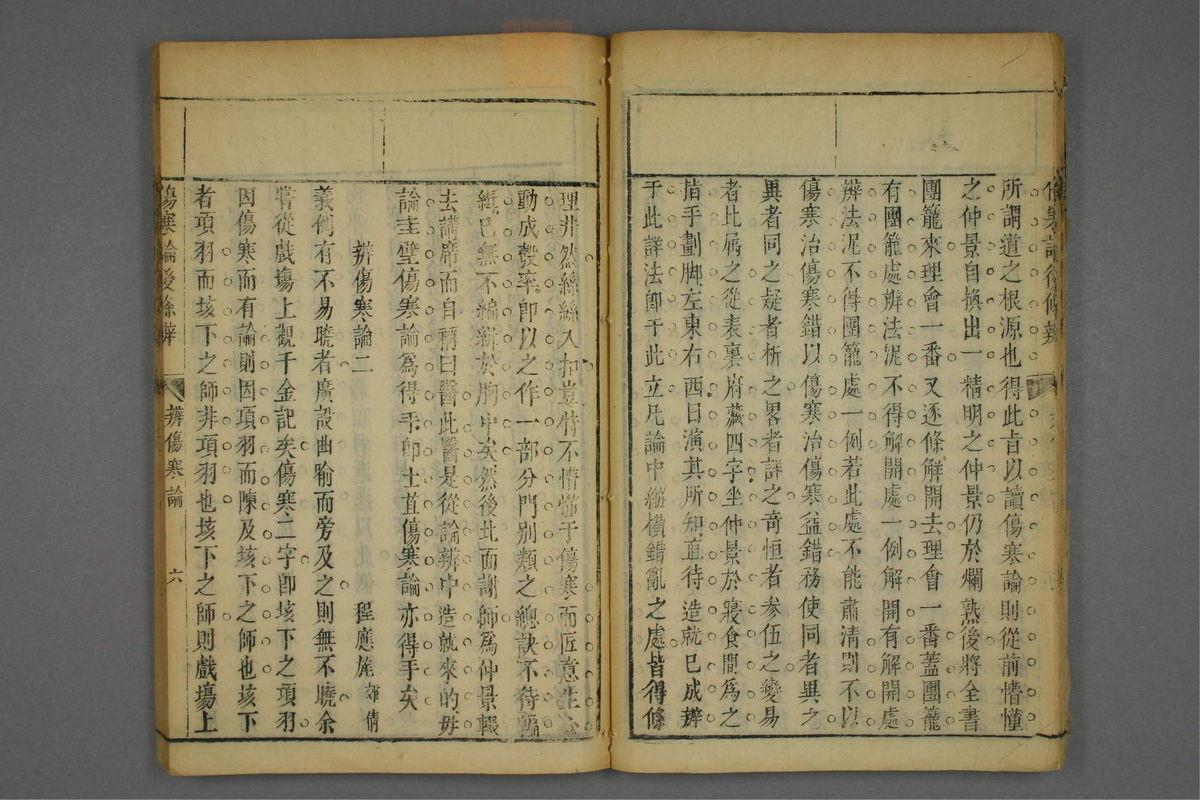 所謂道之根源也得此旨以讀傷寒論則從前懵懂
之仲景自換出一精明之仲景仍於爛熟後將全書
團籠來理會一番又逐條解開去理會一番蓋團籠
有團籠處辨法泥不得解開處一例解開有解開處
辨法泥不得團籠處一例若此處不能肅清則不以
傷寒治傷寒錯以傷寒治傷寒益錯務使同者異之
異者同之疑者析之畧者詳之奇恒者參伍之變易
者比属之從表裏府藏四字坐仲景於寢食間為之
指手劃脚左東右西日演其所知直待造就已成辨
于此詳法即于此立凡論中縱橫錯亂之處皆得條
理井然絲絲入扣豈特不懵懂于傷寒而匠意生心
動成彀率即以之作一部分門別類之總訣不待編
緝已無不編緝於胸中矣然後北面謝師為仲景輟
去講席而自稱曰醫此醫是從論辨中造就來的毋
論圭璧傷寒論為得手即土苴傷寒論亦得手矣
辨傷寒論二
程應旄 郊倩
義例有不易曉者廣設曲喻而旁及之則無不曉余
嘗從戲場上觀千金記矣傷寒二字即垓下之項羽
因傷寒而有論則因項羽而陳及垓下之師也垓下
者項羽而垓下之師非項羽也垓下之師則戲場上
傷寒論後條辨 辨傷寒論 六